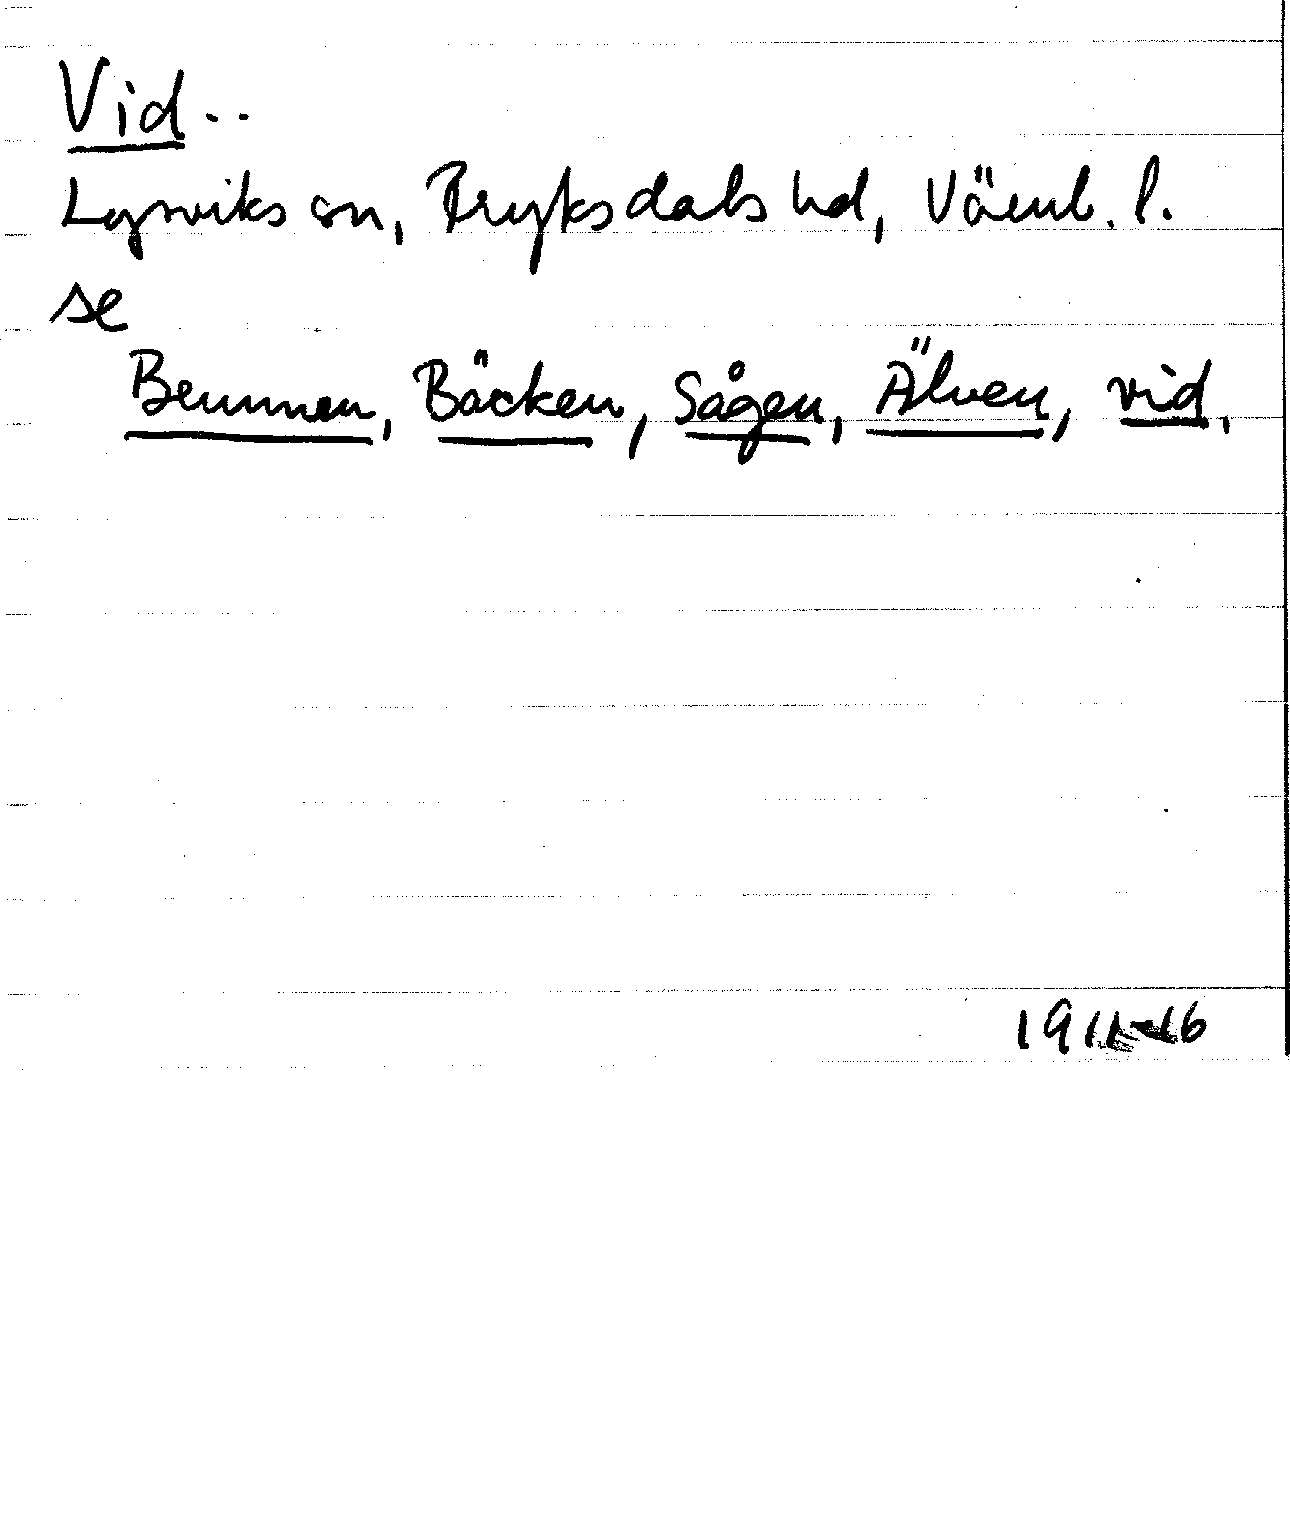 Vid..
Lysviks sn, Fryksdals hd, Värml. l.
se
Brunnen, Bäcken, Sågen, Älven, vid.
1911-16